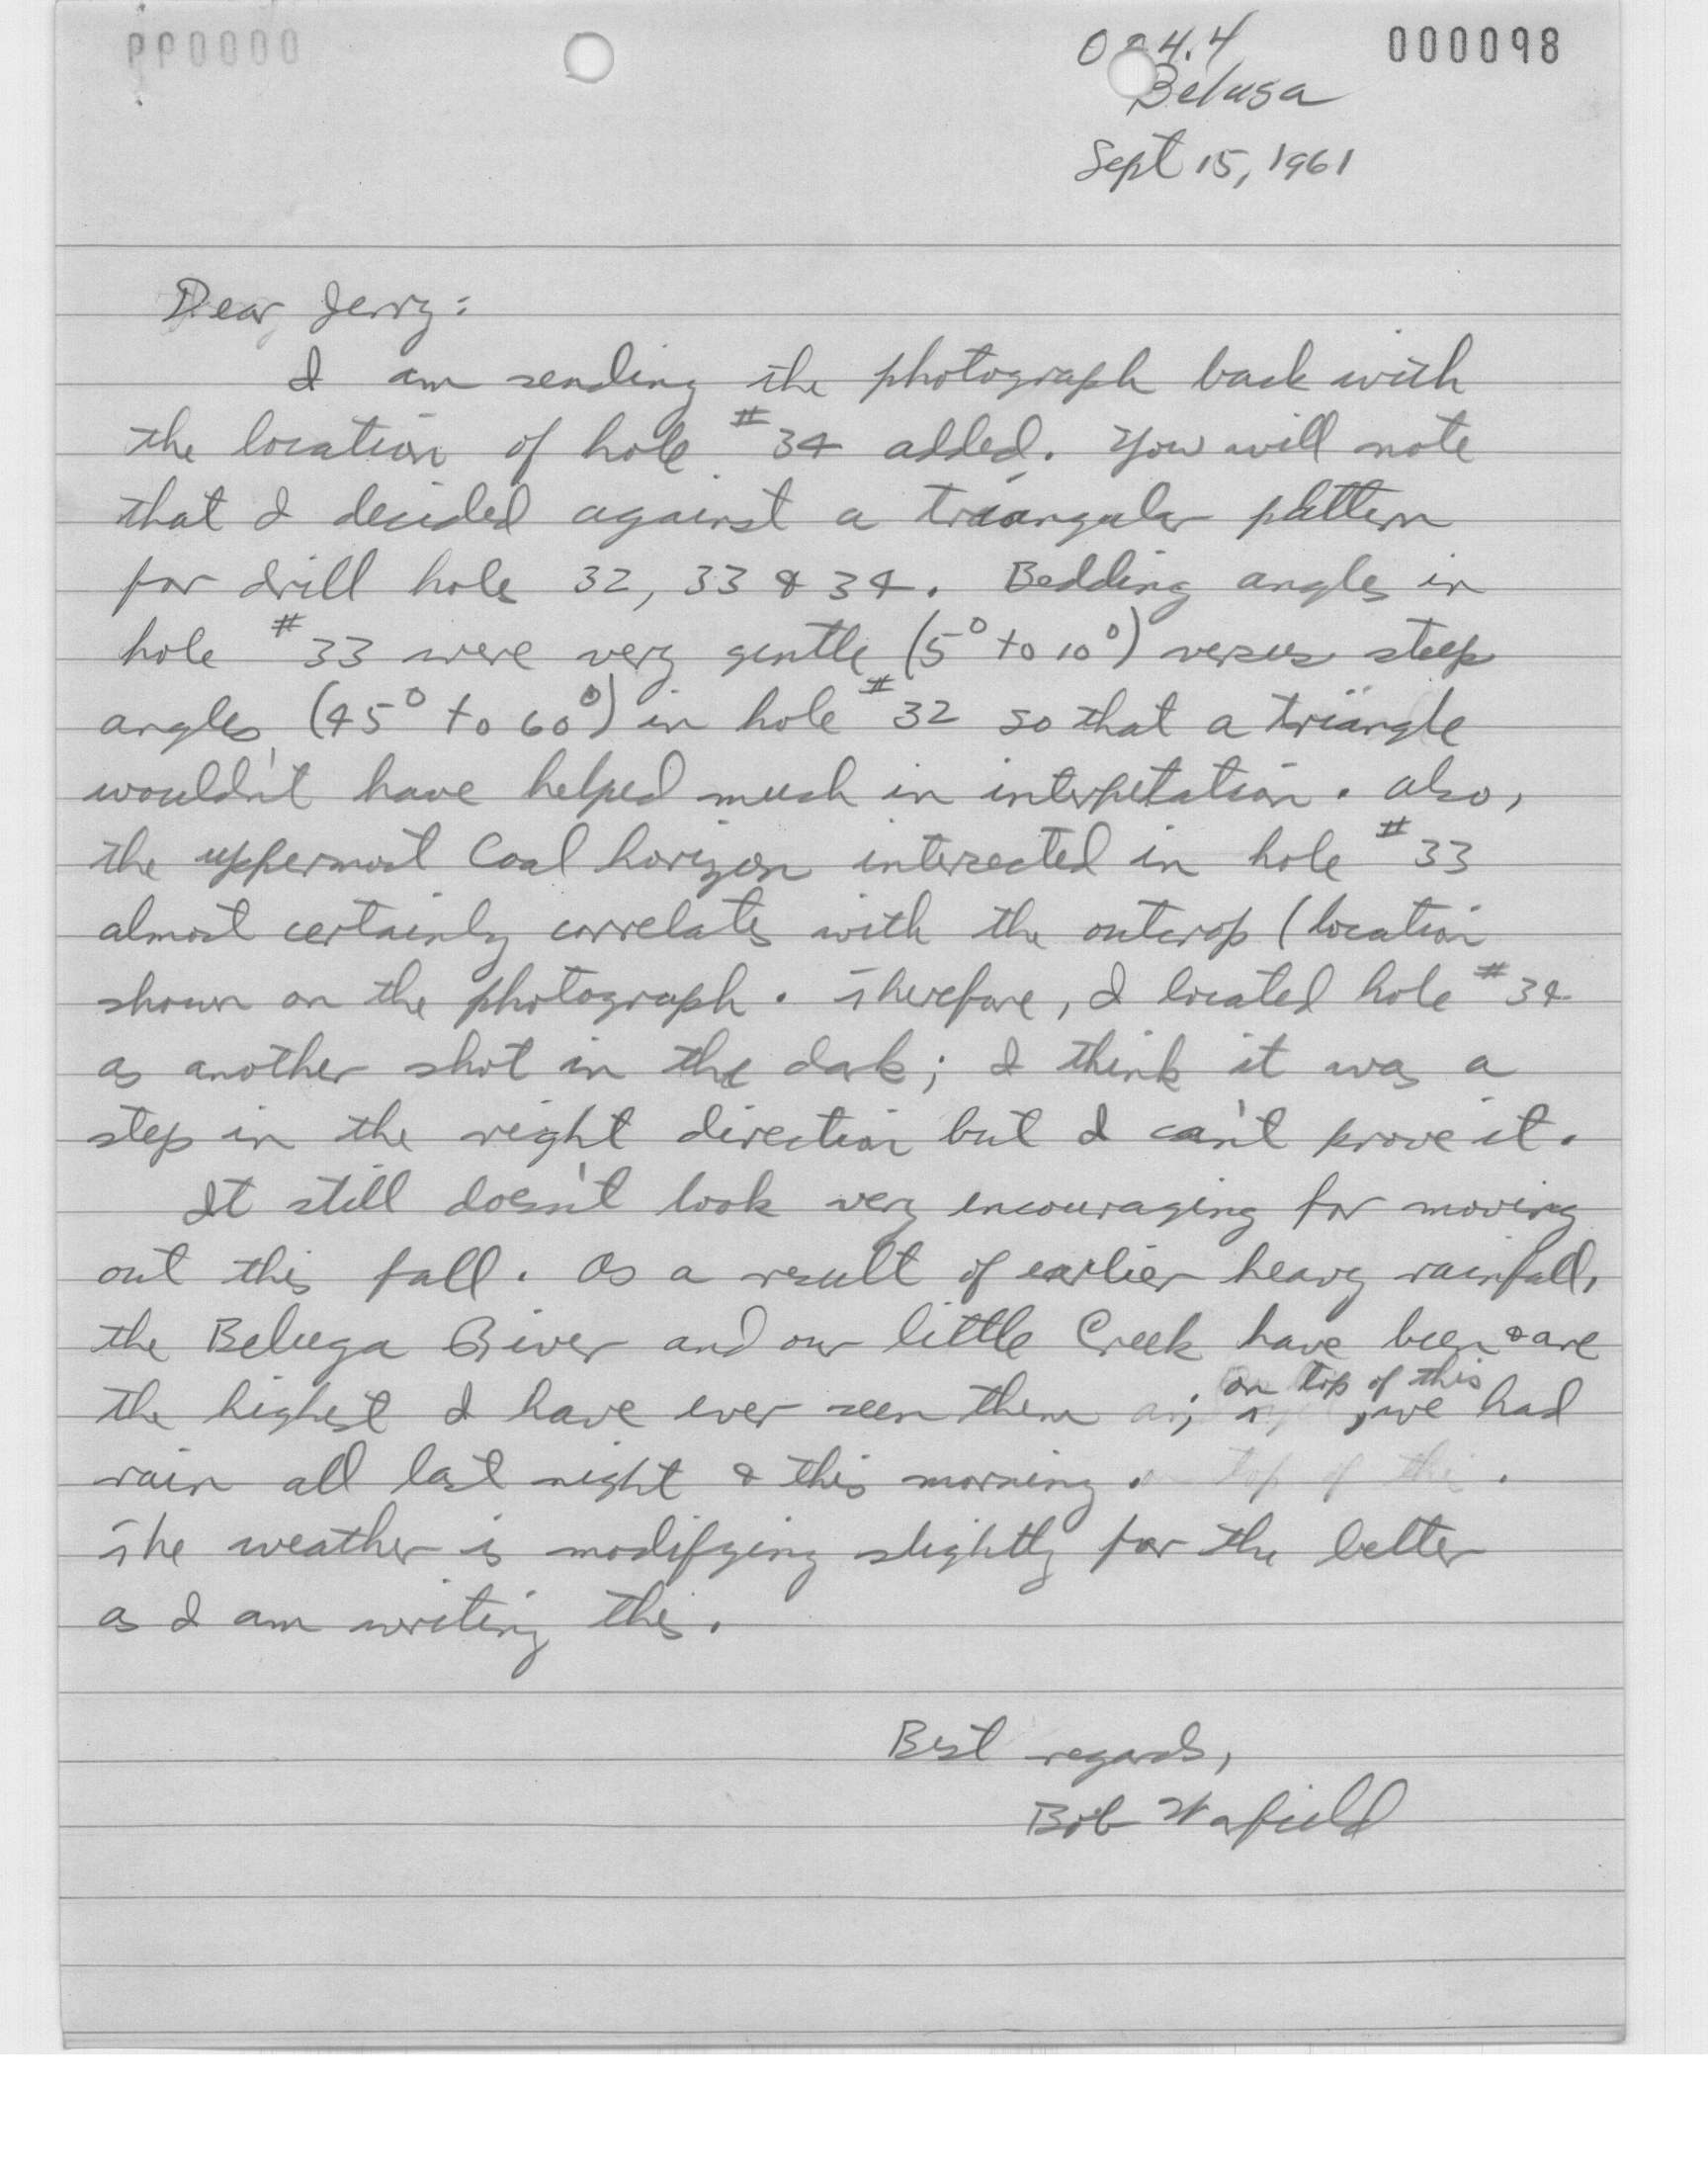 000098
Beluga
Sept 15, 1961
Dear Jerry:
I am sending the photograph back with
the location of hole #34 added. You will note
that I decided against a triangular pattern
for drill hole 32, 33 & 34. Bedding angles in
hole #33 were very gentle (5° to 10°) versus steep
angles (45° to 60°) in hole #32 so that a triangle
wouldn't have helped much in interpetation. Also,
the uppermost Coal horizon intersected in hole #33
almost certainly correlates with the outcrop (location
shown on the photograph. Therefore, I located hole #34
as another shot in the dark; I think it was a
step in the right direction but I can't prove it.
It still doesn't look very encouraging for moving
out this fall. As a result of earlier heavy rainfall,
the Beluga River and our little Creek have been & are
the highest I have ever seen them; on top of this, we had
rain all last night & this morning.
The weather is modifying slightly for the better
as I am writing this.
Best regards,
Bob Warfield